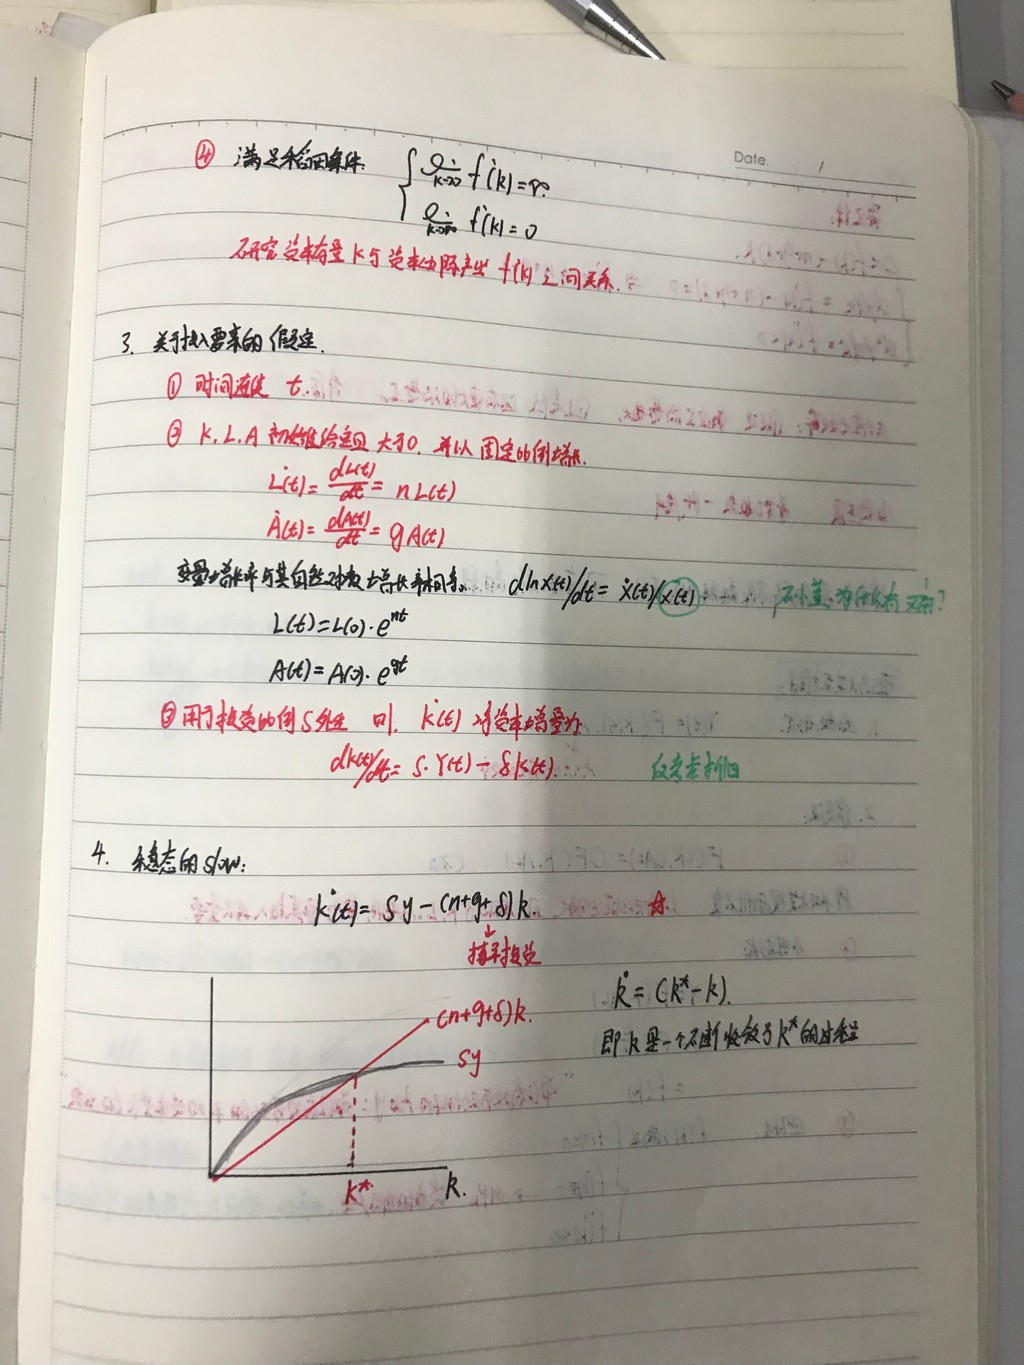 Date. /
④ 满足稻田条件. lim k→0 f'(k)=∞
lim k→∞ f'(k)=0
研究资本存量k与资本边际产出 f'(k)之间关系.
3. 关于投入要素的假定.
① 时间连续 t.
② K, L, A 初始值给定且大于0. 并以固定比例增长.
L̇(t)=dL(t)/dt=nL(t)
Ȧ(t)=dA(t)/dt=gA(t)
变量增长率与其自然对数增长率相等. dlnx(t)/dt=ẋ(t)/x(t) 不小差, 为什么有
L(t)=L(0)·e^nt
A(t)=A(0)·e^gt
③ 用于投资的例S外生 则. K̇(t) 资本增量为
dk(t)/dt=S·Y(t)-δK(t). 仅考虑折旧
4. 稳态的Slow:
k̇(t)=Sy-(n+g+δ)k. ☆
↓
持平投资
(n+g+δ)k.
Sy
k* k.
k̇=(k*-k).
即k是一个不断收敛于k*的过程